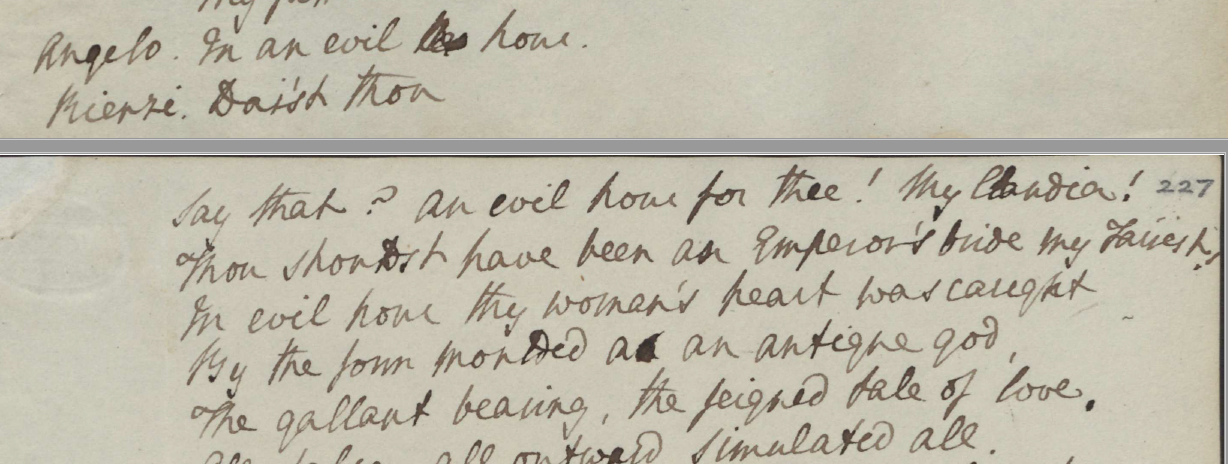 My
Angelo. In an evil hour.
Rienzi. Dar'st thou
Say that? An evil hour for thee! My Claudia! 227
Thou shouldst have been an Emperor's bride my Fairest,
In evil hour thy woman's heart was caught
By the form moulded as an antique god,
The gallant bearing, the feigned tale of love.
All false, all outward simulated all.